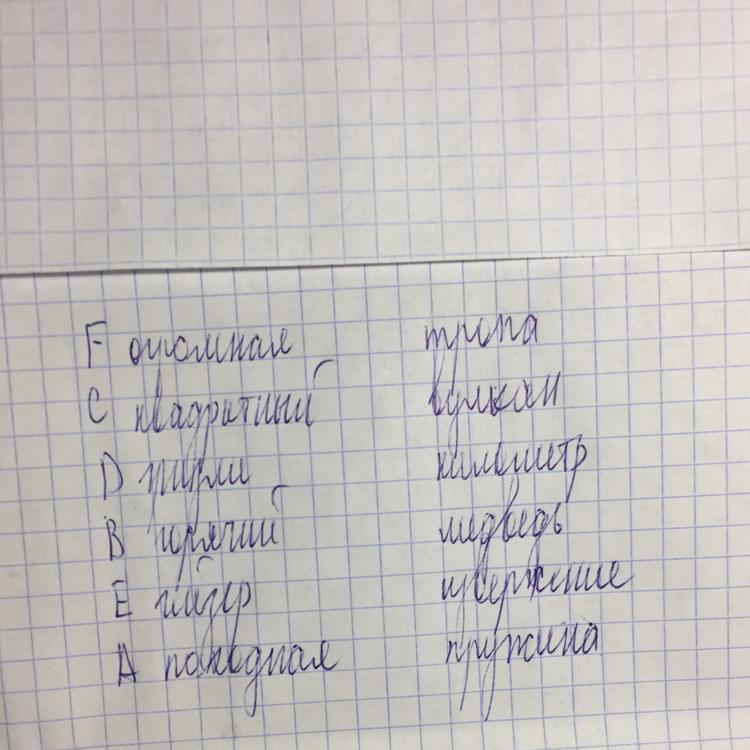 F огромная тропа
C квадратный вулкан
D гризли километр
B горячий медведь
E гейзер извержение
A походная пружина